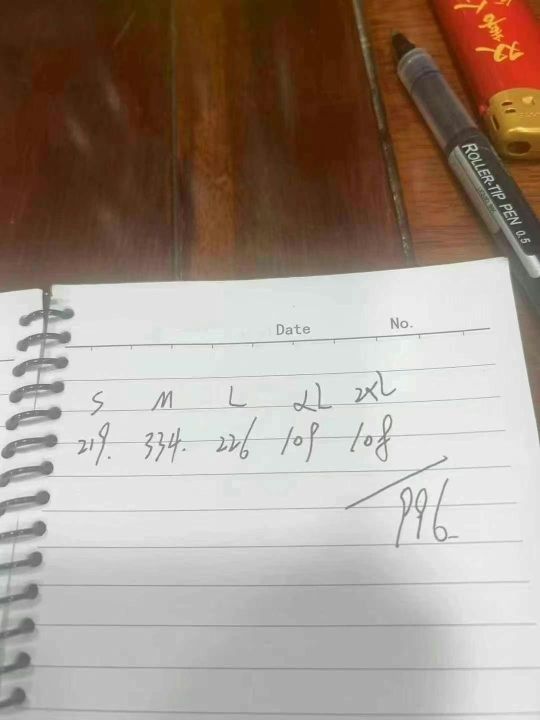 ROLLER-TIP PEN 0.5
Date No.
S M L XL 2XL
219. 334. 226 109 108
996